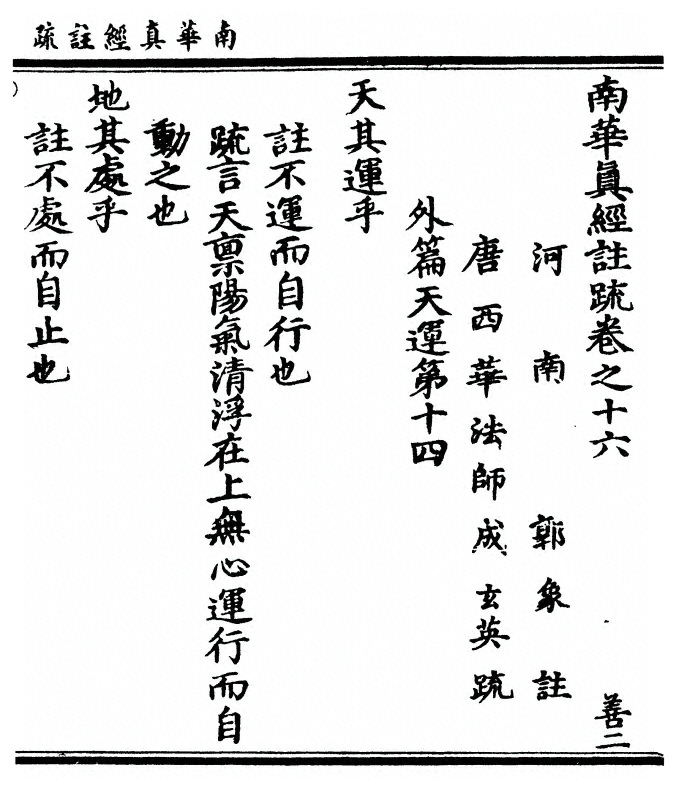 南華真經註疏
南華眞經註疏卷之十六 善二
河南郭象註
唐西華法師成玄英疏
外篇天運第十四
天其運乎
註不運而自行也
疏言天禀陽氣清浮在上無心運行而自
動之也
地其處乎
註不處而自止也